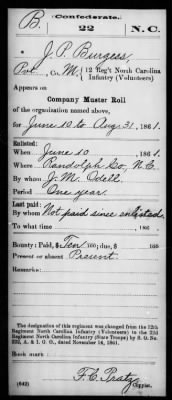 B. Confederate. N.C.
22
J. P. Burgess,
Pvt., Co. M, 12 Reg't North Carolina
Infantry (Volunteers)
Appears on
Company Muster Roll
of the organization named above,
for June 10 to Aug 31, 1861.
Enlisted:
When June 10, 1861.
Where Randolph Co, N.C.
By whom J. M. Odell
Period One year.
Last paid:
By whom Not paid since enlisted
To what time , 186
Bounty: Paid $ Ten 100; due, $ 100
Present or absent Present.
Remarks:
The designation of this regiment was changed from the 12th
Regiment North Carolina Infantry (Volunteers) to the 22d
Regiment North Carolina Infantry (State Troops) by S. O. No.
222, A. & I. G. O., dated November 14, 1861.
Book mark:
F. C. Pratz
(642) Copyist.